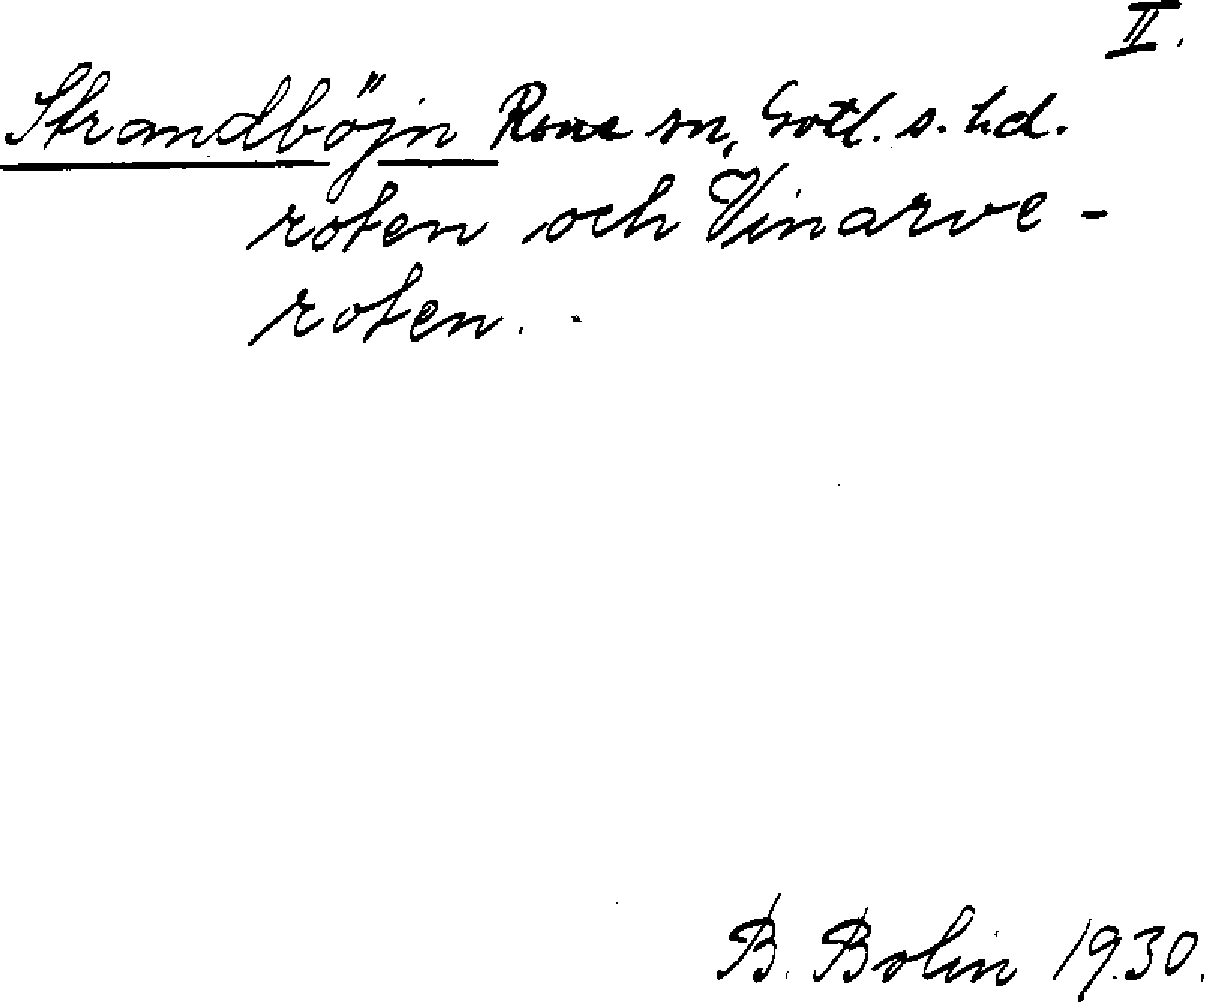 II.
Strandböjn Rone sn, Gotl. s. hd.
roten och Vinarve-
roten.
B. Bolin 1930.